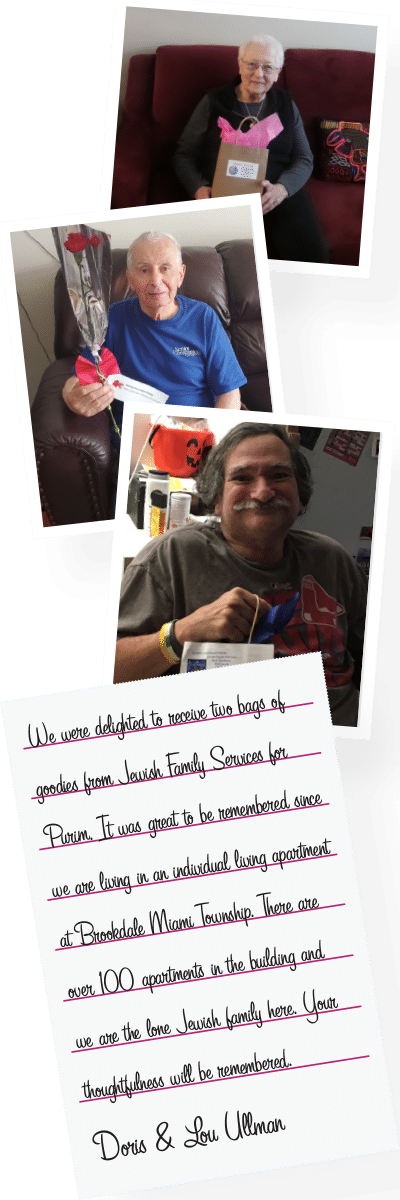 We were delighted to receive two bags of
goodies from Jewish Family Services for
Purim. It was great to be remembered since
we are living in an individual living apartment
at Brookdale Miami Township. There are
over 100 apartments in the building and
we are the lone Jewish family here. Your
thoughtfulness will be remembered.
Doris & Lou Ullman